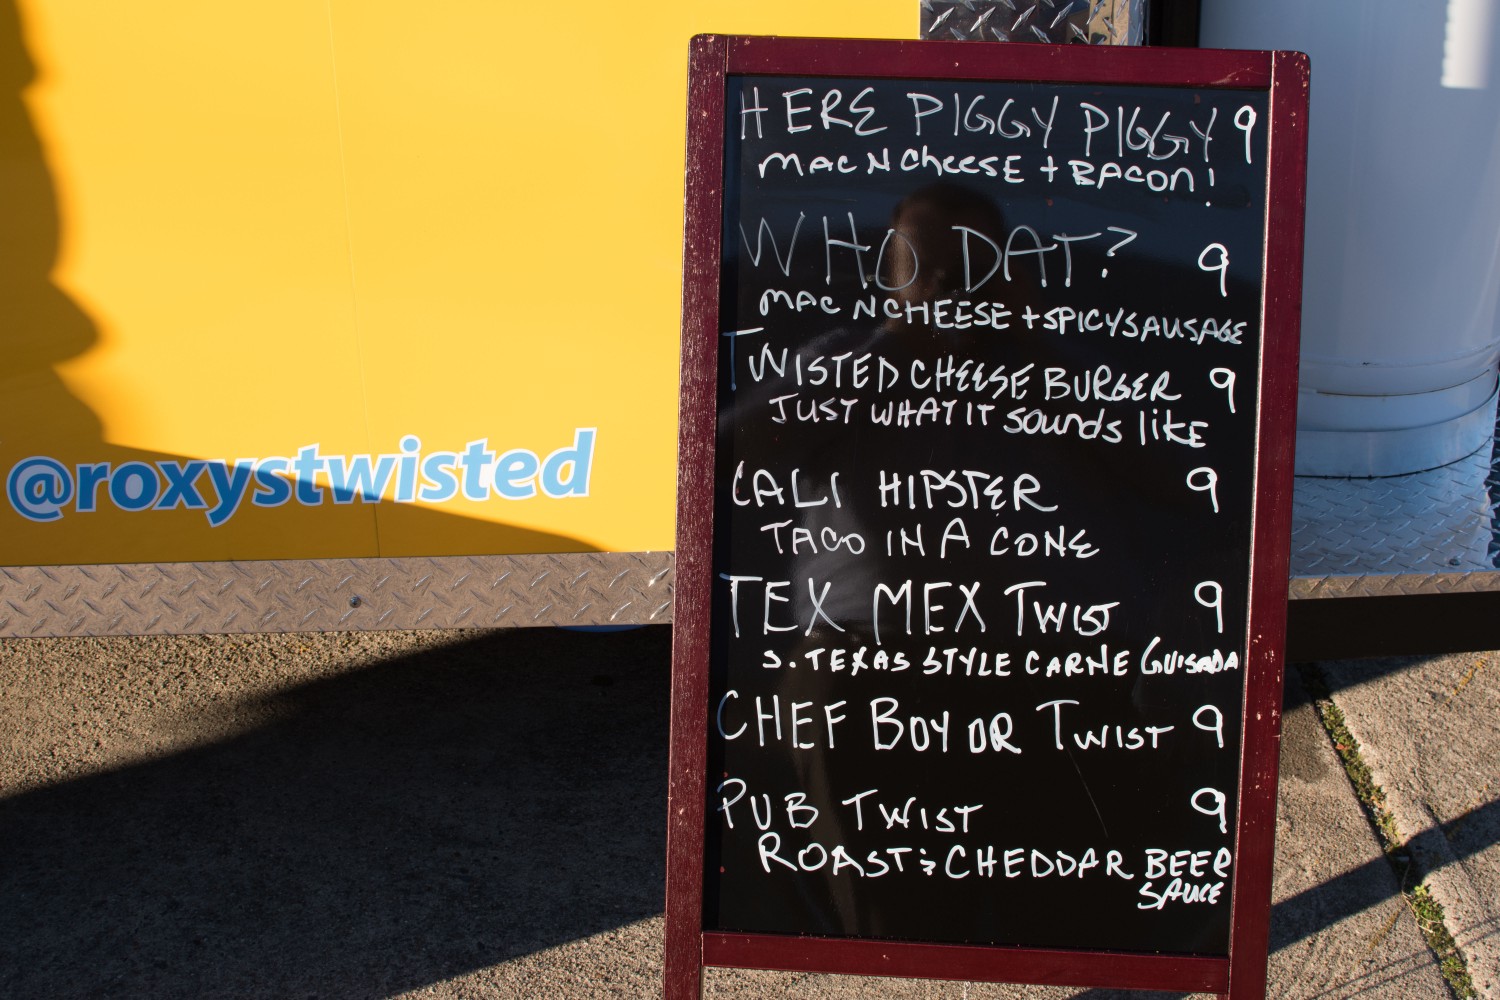 HERE PIGGY PIGGY 9
MAC N CHEESE + BACON!
WHO DAT? 9
MAC N CHEESE + SPICY SAUSAGE
TWISTED CHEESE BURGER 9
JUST WHAT IT SOUNDS LIKE
CALI HIPSTER 9
TACO IN A CONE
TEX MEX TWIST 9
S. TEXAS STYLE CARNE GUISADA
CHEF BOY OR TWIST 9
PUB TWIST 9
ROAST & CHEDDAR BEER
SAUCE
@roxystwisted